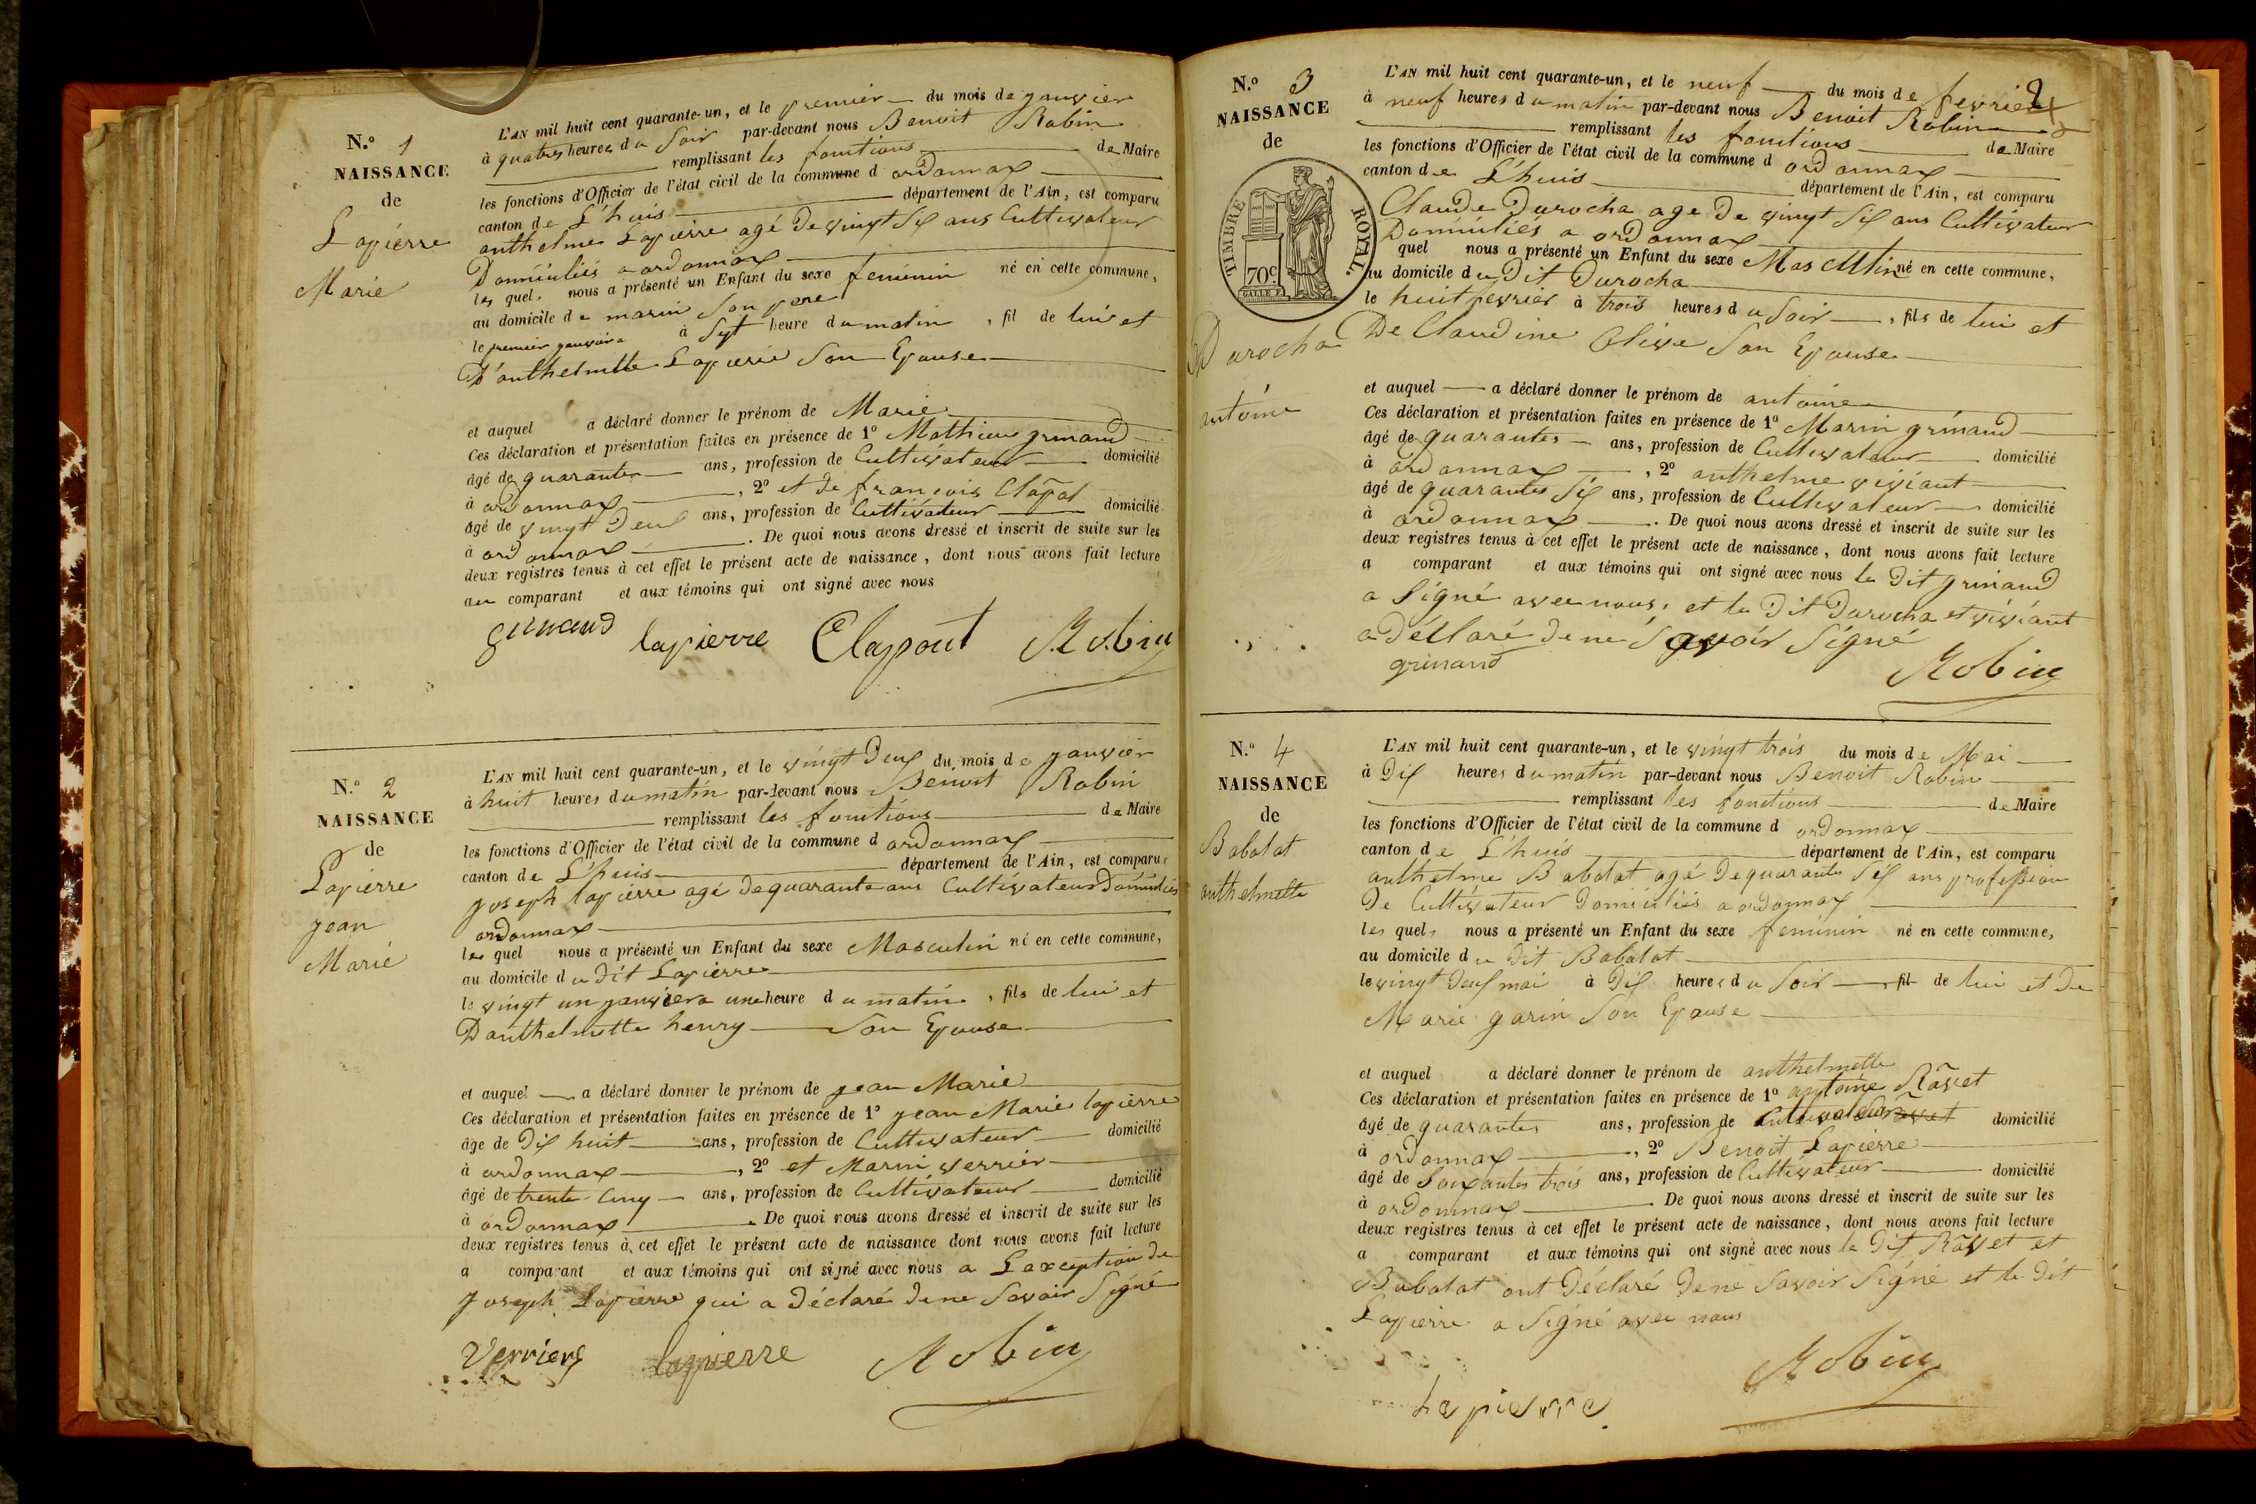 N.o 1
NAISSANCE
de
Lapierre
Marie
L'AN mil huit cent quarante-un, et le premier du mois de janvier
à quatres heures du Soir par-devant nous Benoit Robin
remplissant les fonctions de Maire
les fonctions d'Officier de l'état civil de la commune d ordonnax
canton de L'huis département de l'Ain, est comparu
anthelme Lapierre agé de vingt Six ans Cultivateur
Domiciliés a ordonnax
les quel nous a présenté un Enfant du sexe feminin né en cette commune,
au domicile de marin Son pere
le premier janvier à Sept heure du matin, fil de lui et
D'anthelmette Lapierre Son Epouse
et auquel a déclaré donner le prénom de Marie
Ces déclaration et présentation faites en présence de 1o Mathieu grinand
âgé de quarantes ans, profession de Cultivateur domicilié
à ordonnax, 2o et de francois Clapot
âgé de vingt Deux ans, profession de Cultivateur domicilié
à ordonnax. De quoi nous avons dressé et inscrit de suite sur les
deux registres tenus à cet effet le présent acte de naissance, dont nous avons fait lecture
au comparant et aux témoins qui ont signé avec nous
grinand lapierre Clapout Robin
N.o 2
NAISSANCE
de
Lapierre
jean
Marie
L'AN mil huit cent quarante-un, et le vingt Deux du mois de janvier
à huit heures du matin par-devant nous Benoit Robin
remplissant les fonctions de Maire
les fonctions d'Officier de l'état civil de la commune d ordonnax
canton de L'huis département de l'Ain, est comparu
joseph lapierre agé de quarante ans Cultivateur Domiciliés
ordonnax
les quel nous a présenté un Enfant du sexe Masculin né en cette commune,
au domicile du dit Lapierre
le vingt un janvier a une heure du matin, fils de lui et
Danthelmette henry Son Epouse
et auquel a déclaré donner le prénom de jean Marie
Ces déclaration et présentation faites en présence de 1o jean Marie lapierre
âge de Dix huit ans, profession de Cultivateur domicilié
à ordonnax, 2o et Marin verrier
âgé de trente Cinq ans, profession de Cultivateur domicilié
à ordonnax. De quoi nous avons dressé et inscrit de suite sur les
deux registres tenus à cet effet le présent acte de naissance dont nous avons fait lecture
a comparant et aux témoins qui ont signé avec nous a Laxception de
joseph Lapierre qui a déclaré de ne Savoir Signé
Verriers lapierre Robin
2
N.o 3
NAISSANCE
de
TIMBRE ROYAL.
70c
Durocha
antoine
L'AN mil huit cent quarante-un, et le neuf du mois de fevrier
à neuf heures du matin par-devant nous Benoit Robin
remplissant les fonctions de Maire
les fonctions d'Officier de l'état civil de la commune d ordonnax
canton de L'huis département de l'Ain, est comparu
Claude Durocha age de vingt Six ans Cultivateur
Domiciliés a ordonnax
quel nous a présenté un Enfant du sexe Masculin né en cette commune,
au domicile du Dit Durocha
le huit fevrier à trois heures du Soir, fils de lui et
De Claudine Olive Son Epouse
et auquel a déclaré donner le prénom de antoine
Ces déclaration et présentation faites en présence de 1o Marin grinand
âgé de quarantes ans, profession de Cultivateur domicilié
à ordonnax, 2o anthelme viviant
âgé de quarantes Six ans, profession de Cultivateur domicilié
à ordonnax. De quoi nous avons dressé et inscrit de suite sur les
deux registres tenus à cet effet le présent acte de naissance, dont nous avons fait lecture
a comparant et aux témoins qui ont signé avec nous le Dit grinand
a Signé avec nous, et le Dit Durocha et viviant
a Déclaré de ne Savoir Signé
grinand Robin
N.o 4
NAISSANCE
de
Babolat
anthelmette
L'AN mil huit cent quarante-un, et le vingt trois du mois de Mai
à Dix heures du matin par-devant nous Benoit Robin
remplissant les fonctions de Maire
les fonctions d'Officier de l'état civil de la commune d ordonnax
canton de L'huis département de l'Ain, est comparu
anthelme Babolat agé de quarantes Six ans profession
De Cultivateur Domiciliés a ordonnax
les quels nous a présenté un Enfant du sexe feminin né en cette commune,
au domicile du Dit Babolat
le vingt Deux mai à Dix heures du Soir, fil de lui et De
Marie garin Son Epouse
et auquel a déclaré donner le prénom de anthelmette
Ces déclaration et présentation faites en présence de 1o antoine Ravet
âgé de quarantes ans, profession de Cultivateur domicilié
à ordonnax, 2o Benoit Lapierre
âgé de Soixantes trois ans, profession de Cultivateur domicilié
à ordonnax. De quoi nous avons dressé et inscrit de suite sur les
deux registres tenus à cet effet le présent acte de naissance, dont nous avons fait lecture
a comparant et aux témoins qui ont signé avec nous le Dit Ravet et
Babolat ont Déclaré De ne Savoir Signé et le Dit
Lapierre a Signé avec nous
Robin
Lapierre